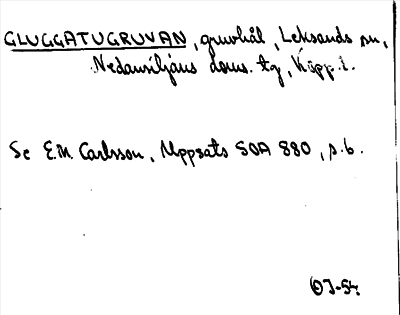 GLUGGATUGRUVAN, gruvhål, Leksands sn,
Nedansiljans doms. tg, Kopp. l.
Se E.M. Carlsson, Uppsats SOA 880, s. 6.
OJ-54